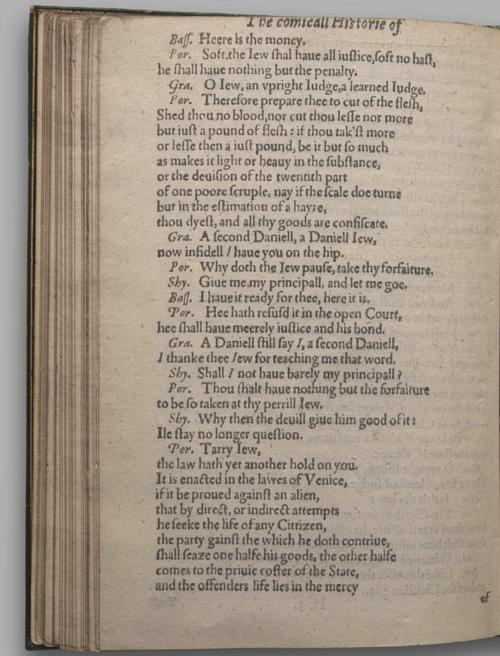 The comicall Historie of
Bass. Heere is the money.
Por. Soft, the Iew shal haue all iustice, soft no hast,
he shall haue nothing but the penalty.
Gra. O Iew, an vpright Iudge, a learned Iudge.
Por. Therefore prepare thee to cut of the flesh,
Shed thou no blood, nor cut thou lesse nor more
but iust a pound of flesh: if thou tak'st more
or lesse then a iust pound, be it but so much
as makes it light or heauy in the substance,
or the deuision of the twentith part
of one poore scruple, nay if the scale doe turne
but in the estimation of a hayre,
thou dyest, and all thy goods are confiscate.
Gra. A second Daniell, a Daniell Iew,
now infidell I haue you on the hip.
Por. Why doth the Iew pause, take thy forfaiture.
Shy. Giue me my principall, and let me goe.
Bass. I haue it ready for thee, here it is.
Por. Hee hath refusd it in the open Court,
hee shall haue meerely iustice and his bond.
Gra. A Daniell still say I, a second Daniell,
I thanke thee Iew for teaching me that word.
Shy. Shall I not haue barely my principall?
Por. Thou shalt haue nothing but the forfaiture
to be so taken at thy perrill Iew.
Shy. Why then the deuill giue him good of it:
Ile stay no longer question.
Por. Tarry Iew,
the law hath yet another hold on you.
It is enacted in the lawes of Venice,
if it be proued against an alien,
that by direct, or indirect attempts
he seeke the life of any Cittizen,
the party gainst the which he doth contriue,
shall seaze one halfe his goods, the other halfe
comes to the priuie coffer of the State,
and the offenders life lies in the mercy
of